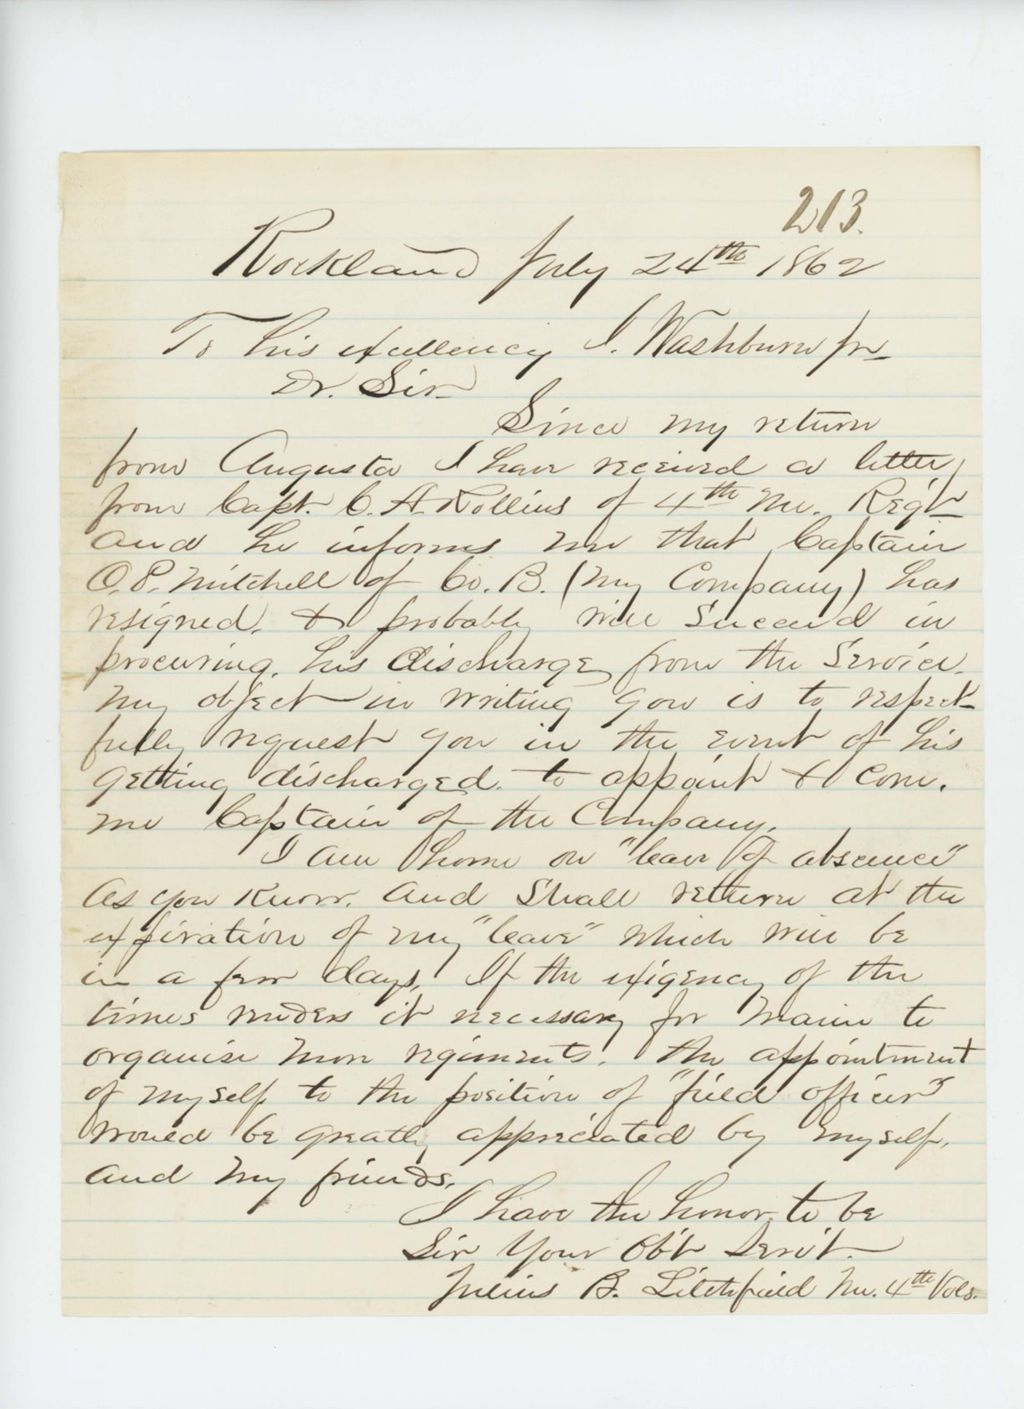 213.
Rockland July 24th 1862
To his excellency I. Washburn Jr
Dr. Sir
Since my return
from Augusta I have received a letter
from Capt. C. A. Rollins of 4th Me. Regt
and he informs me that Captain
O. P. Mitchell of Co. B. (my Company) has
resigned. & probably will succeed in
procuring, his discharge from the service.
My object in writing you is to respect-
fully request you in the event of his
getting discharged. to appoint & com.
me Captain of the Company.
I am home on "leave of absence"
as you know. and shall return at the
expiration of my "leave" which will be
in a few days. If the exigency of the
times renders it necessary for Maine to
organise more regiments. the appointment
of myself to the position of "field officer"
would be greatly appreciated by myself,
and my friends.
I have the honor to be
Sir Your Obt Servt.
Julius B. Litchfield Me. 4th Vols.